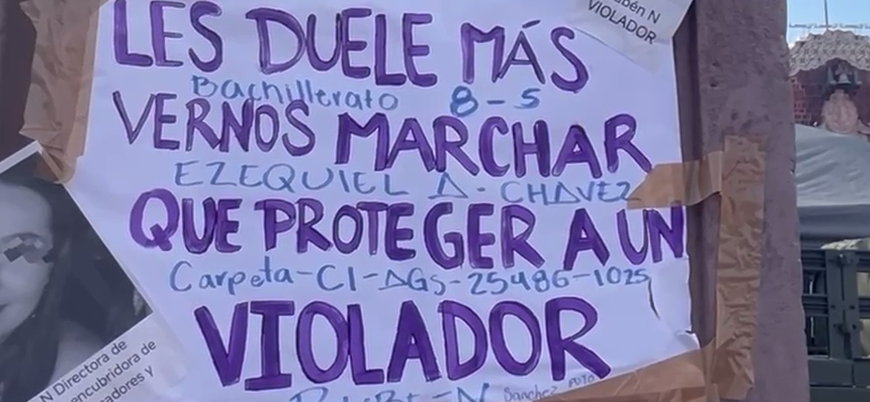 LES DUELE MÁS
Bachillerato 8-5
VERNOS MARCHAR
EZEQUIEL A. CHAVEZ
QUE PROTEGER A UN
Carpeta-CI-AGS-25486-1025
VIOLADOR
Sanchez PUTO
bén N
VIOLADOR
N Directora de
encubridora de
adores y